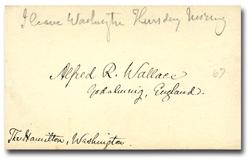 I leave Washington Thursday Morning
Alfred R. Wallace
67
Godalming, England.
The Hamilton, Washington.